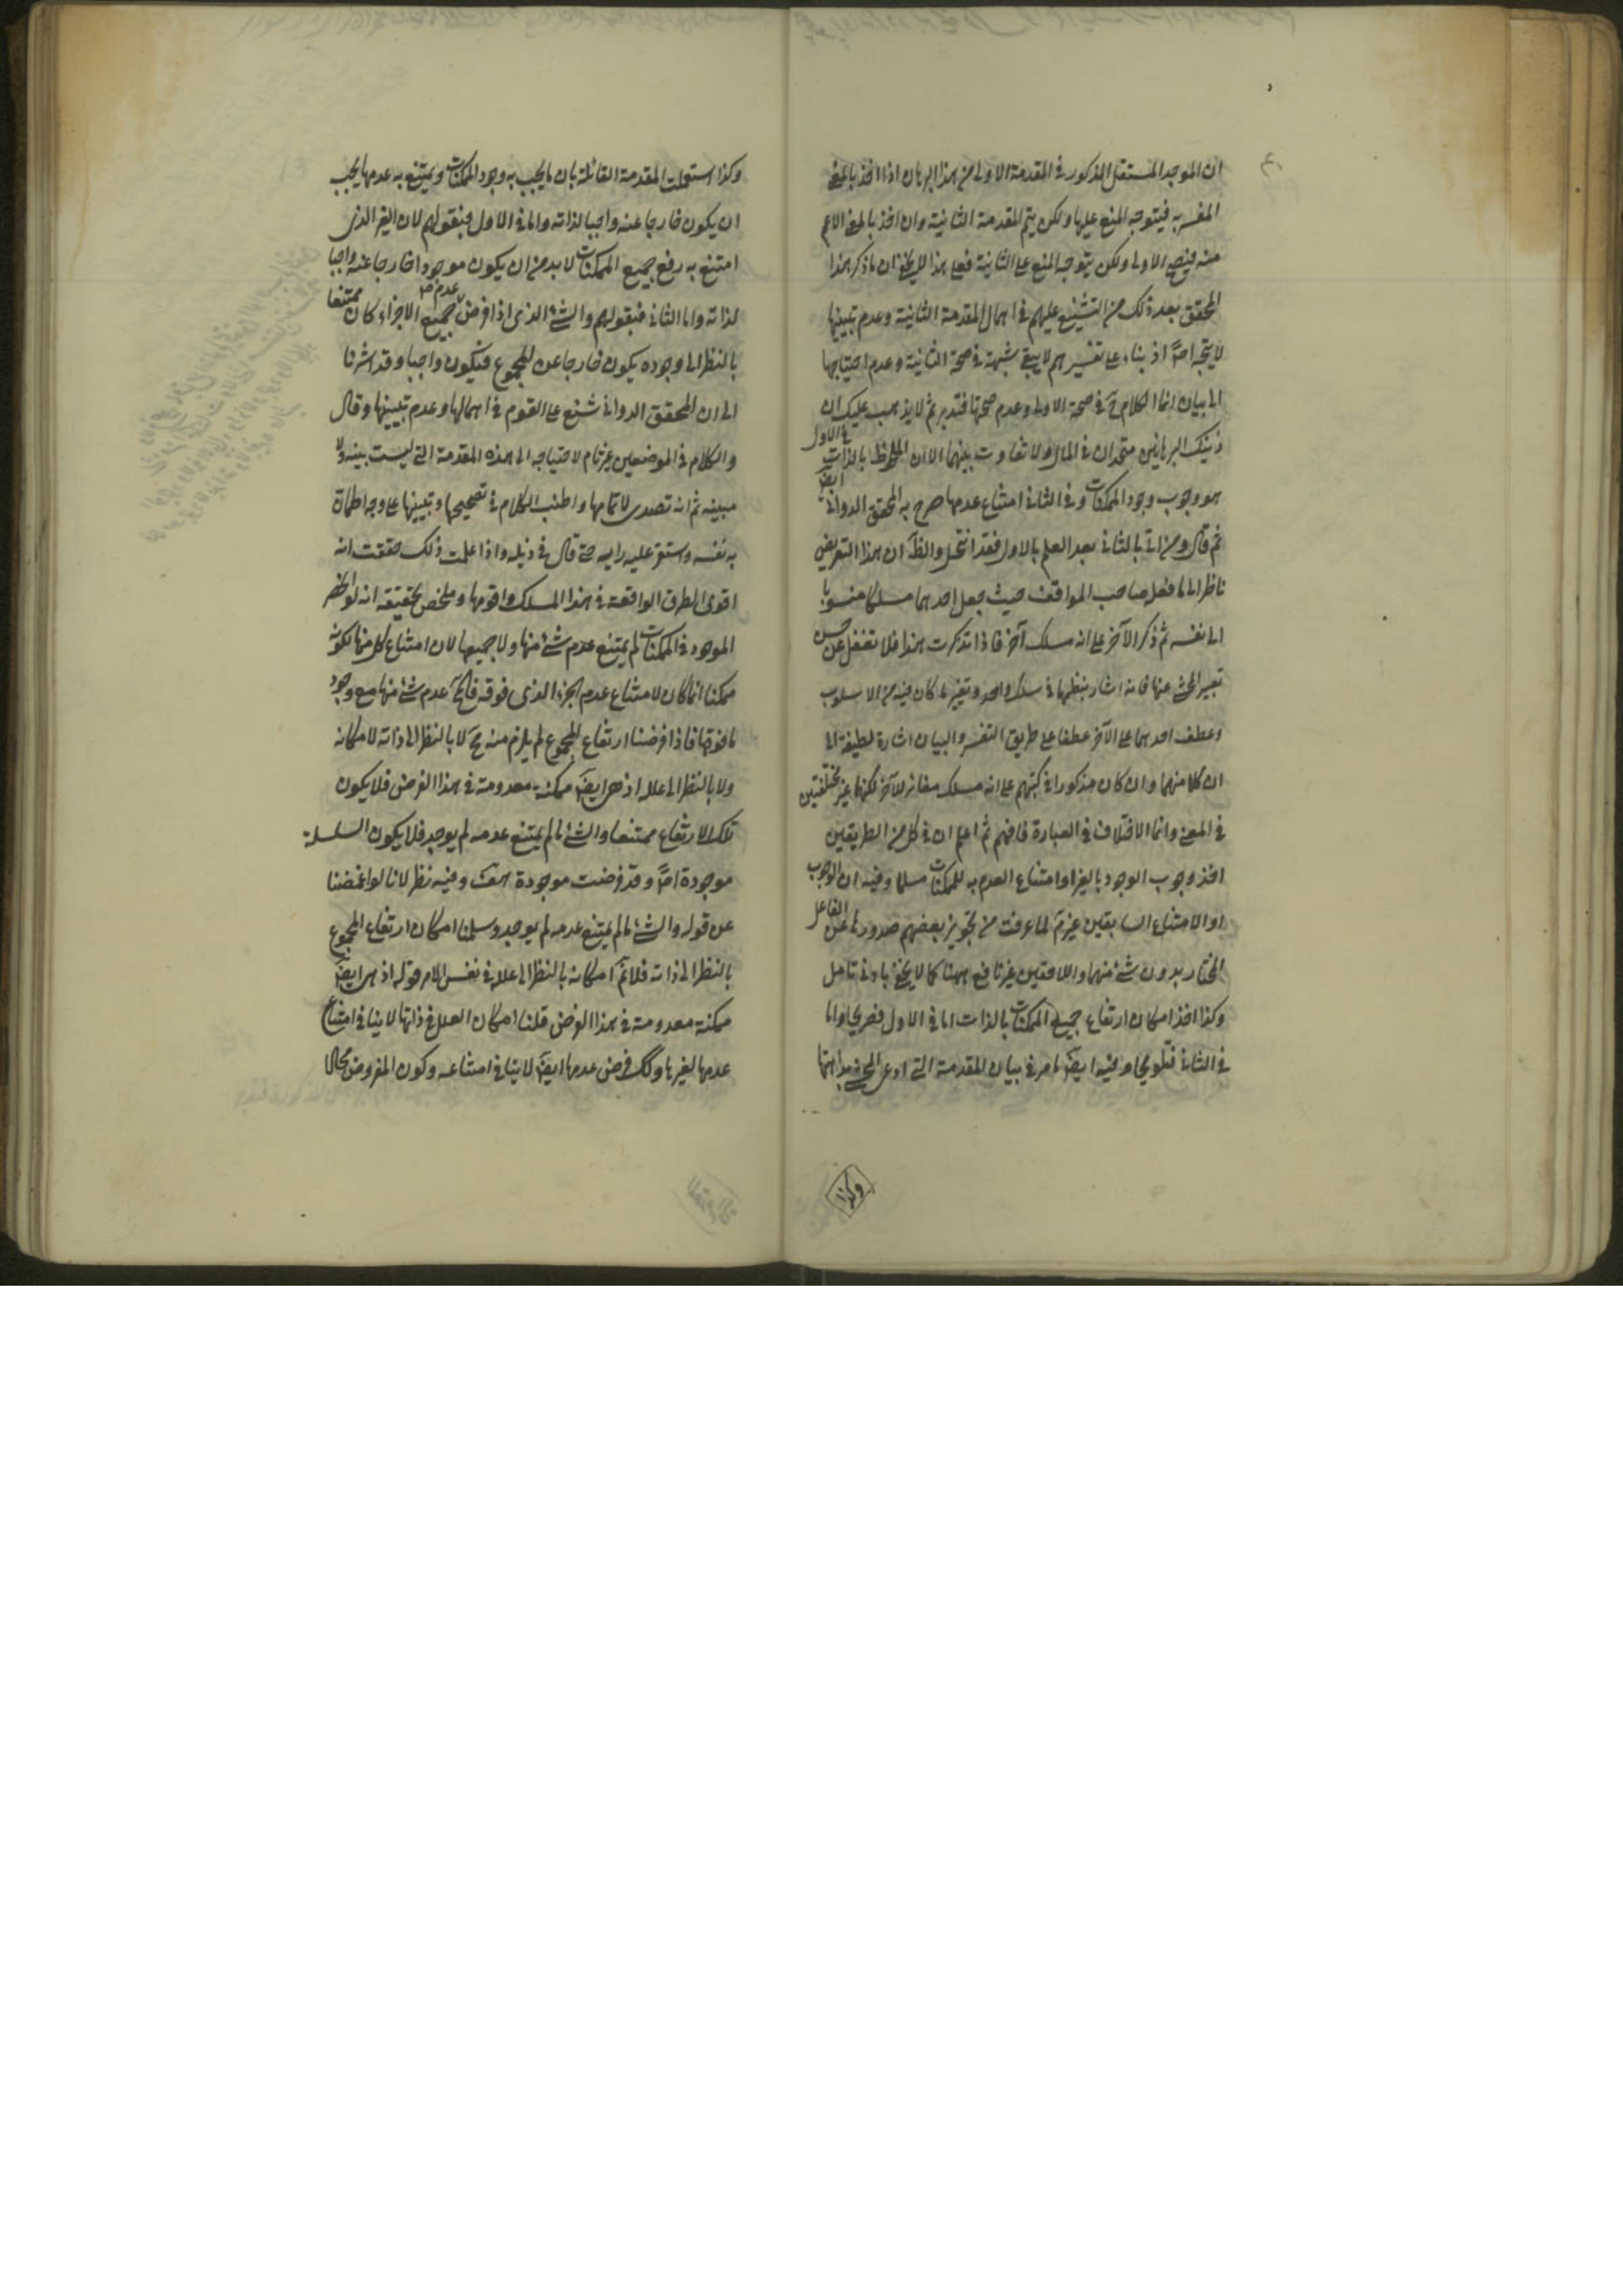 ان الموجد المستقل المذكور في المقدمة الاولى من هذا البرهان اذا اخذ بالمعنى
المفسر به فيتوجه المنع عليها ولكن يتم المقدمة الثانية وان اخذ بالمعنى الاعم
منه فيصح الاولى ولكن يتوجه المنع على الثانية فعلى هذا لا يخفى ان ما ذكر هذا
المحقق بعد ذلك من التشنيع عليهم في اهمال المقدمة الثانية وعدم تبيينها
لا يتجه اصلا اذ بناء على تفسيرهم لا يبقى شبهة في صحة الثانية وعدم احتياجها
الى بيان انما الكلام ح في صحة الاولى وعدم صحتها فتدبر ثم لا يذهب عليك ان
ذينك البرهانين متحدان في المآل ولا تفاوت بينهما الا ان الملحوظ بالذات في الاول
هو وجوب وجود الممكنات وفي الثاني امتناع عدمها صرح به المحقق الدواني ايضا
ثم قال ومن اتى بالثاني بعد العلم بالاول فقد انتحل والظ ان هذا التعريض
ناظر الى ما فعله صاحب المواقف حيث جعل احدهما مسلكا منسوبا
الى نفسه ثم ذكر الآخر على انه مسلك آخر فاذا تذكرت هذا فلا تغفل عن حسن
تعبير المحشي عنها فانه اشار بنظمها في سلك واحد وتغيير ما كان فيه من الاسلوب
وعطف احدهما على الآخر عطفا على طريق التفسير والبيان اشارة لطيفة الى
ان كلا منهما وان كان مذكورا في كتبهم على انه مسلك مغائر للآخر لكنهما غير مختلفتين
في المعنى وانما الاختلاف في العبارة فافهم ثم اعلم ان في كل من الطريقين
اخذ وجوب الوجود بالغير او امتناع العدم به للممكنات مسلما وفيه ان الوجوب
او الامتناع السابقين غير م لما عرفت من تجويز بعضهم صدورها عن الفاعل
المختار بدون شئ منهما واللاحقين غير نافع ههنا كما لا يخفى بادنى تامل
وكذا اخذ امكان ارتفاع جميع الممكنات بالذات اما في الاول فصريحا واما
في الثاني فتلويحا وفيه ايض ما مر في بيان المقدمة التي ادعى المحشي بداهتها
وكذا
وكذا استعملت المقدمة القائلة بان ما يجب به وجود الممكنات ويمتنع به عدمها يجب
ان يكون خارجا عنه واجبا لذاته واما في الاول فبقولهم لان الغير الذي
امتنع به رفع جميع الممكنات لا بد من ان يكون موجودا خارجا عنه واجبا
لذاته واما الثاني فبقولهم والشئ الذي اذا فرض عدم جميع الاجزاء كان ممتنعا
بالنظر الى وجوده يكون خارجا عن المجموع فيكون واجبا وقد اشرنا
الى ان المحقق الدواني شنع على القوم في اهمالها وعدم تبيينها وقال
والكلام في الموضعين غير تام لاحتياجه الى هذه المقدمة التي ليست بينة ولا
مبينة ثم انه تصدى لاتمامها واطنب الكلام في تصحيحها وتبيينها على وجه اطمأن
به نفسه واستقر عليه رايه حتى قال في ذيله واذا علمت ذلك حققت انه
اقوى الطرق الواقعة في هذا المسلك واقومها وملخص تحقيقه انه لو انحصر
الموجود في الممكنات لم يمتنع عدم شئ منها ولا جميعها لان امتناع كل منها لكونه
ممكنا انما كان لامتناع عدم الجزء الذي فوقه عدم شئ منها مع وجود
ما فوقها فاذا فرضنا ارتفاع المجموع لم يلزم منه مح لا بالنظر الى ذاته لامكانه
ولا بالنظر الى علله اذ هي ايض ممكنة معدومة في هذا الفرض فلا يكون
تلك الارتفاع ممتنعا والشئ ما لم يمتنع عدمه لم يوجد فلا يكون السلسلة
موجودة اصلا وقد فرضت موجودة هف وفيه نظر لانا لو اغمضنا
عن قوله والشئ ما لم يمتنع عدمه لم يوجد وسلمنا امكان ارتفاع المجموع
بالنظر الى ذاته فلا نم امكانه بالنظر الى علله في نفس الامر قوله اذ هي ايض
ممكنة معدومة في هذا الفرض قلنا امكان العلل في ذاتها لا ينافي امتناع
عدمها لغيرها وكك فرض عدمها ايض لا ينافي امتناعه وكون المفروض محالا